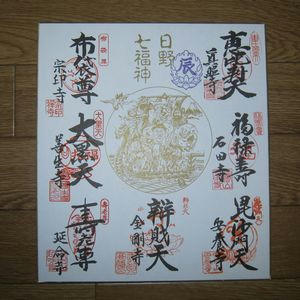 日野
七福神
辰
真照寺
福禄寿
石田寺
毘沙門天
安養寺
辨財天
金剛寺
布袋尊
宗印寺
大黒天
善生寺
寿老尊
延命寺